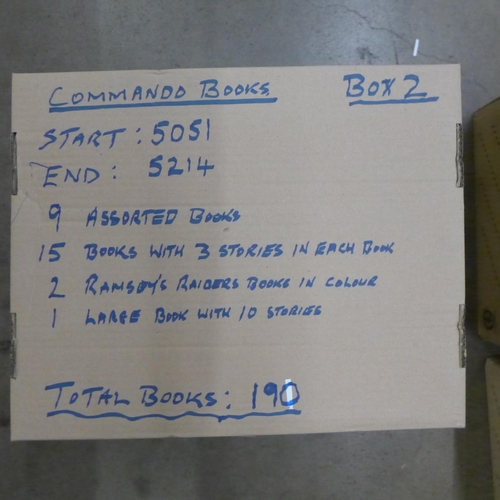 COMMANDO BOOKS BOX 2
START: 5051
END: 5214
9 ASSORTED BOOKS
15 BOOKS WITH 3 STORIES IN EACH BOOK
2 RAMSEY'S RAIDERS BOOKS IN COLOUR
1 LARGE BOOK WITH 10 STORIES
TOTAL BOOKS: 190